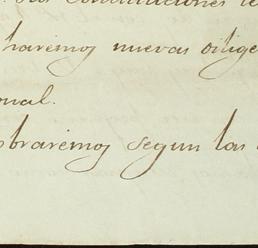 Constituciones
haremos nuevas dilige
onal.
obraremos segun las